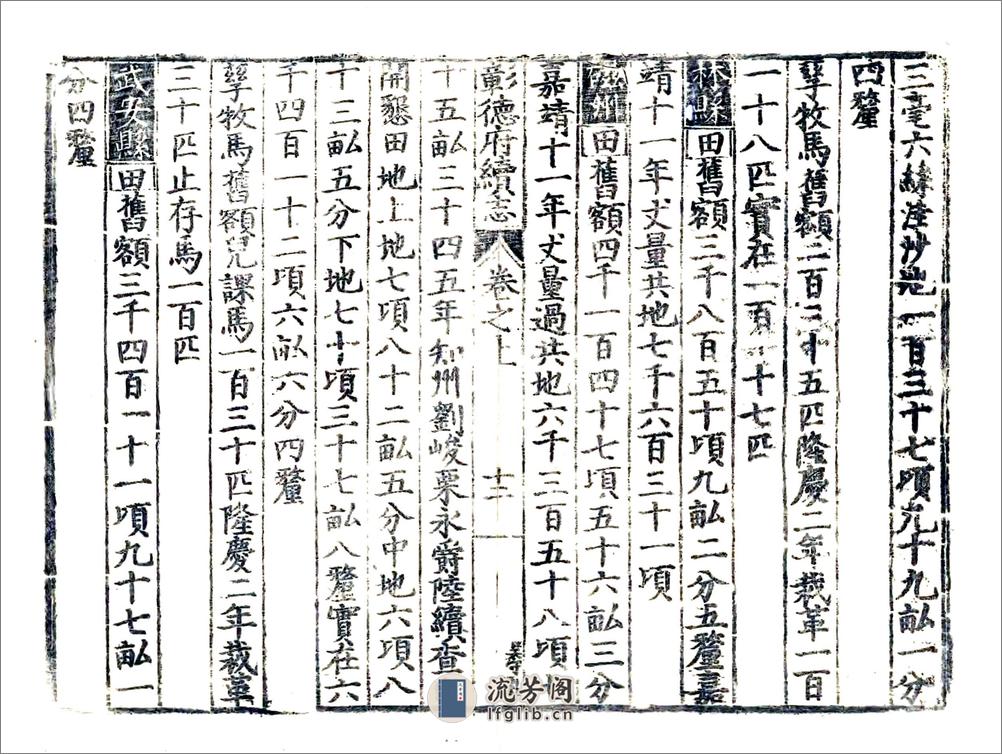 三毫六緯淤沙地一百三十七頃九十九畝一分
四釐
孳牧馬舊額二百三十五匹隆慶二年裁革一百
一十八匹實在一百一十七匹
林縣田舊額三千八百五十頃九畝二分五釐嘉
靖十一年丈量共地七千六百三十一頃
磁州田舊額四千一百四十七頃五十六畝三分
嘉靖十一年丈量過共地六千三百五十八頃
彰德府續志 卷之上 十二
十五畝三十四五年知州劉峻栗永爵陸續查
開懇田地上地七頃八十二畝五分中地六頃八
十三畝五分下地七十頃三十七畝八釐實在六
千四百一十二頃六畝六分四釐
孳牧馬舊額兒課馬一百三十匹隆慶二年裁革
三十匹止存馬一百匹
武安縣田舊額三千四百一十一頃九十七畝一
分四釐
流芳阁
lfglib.cn